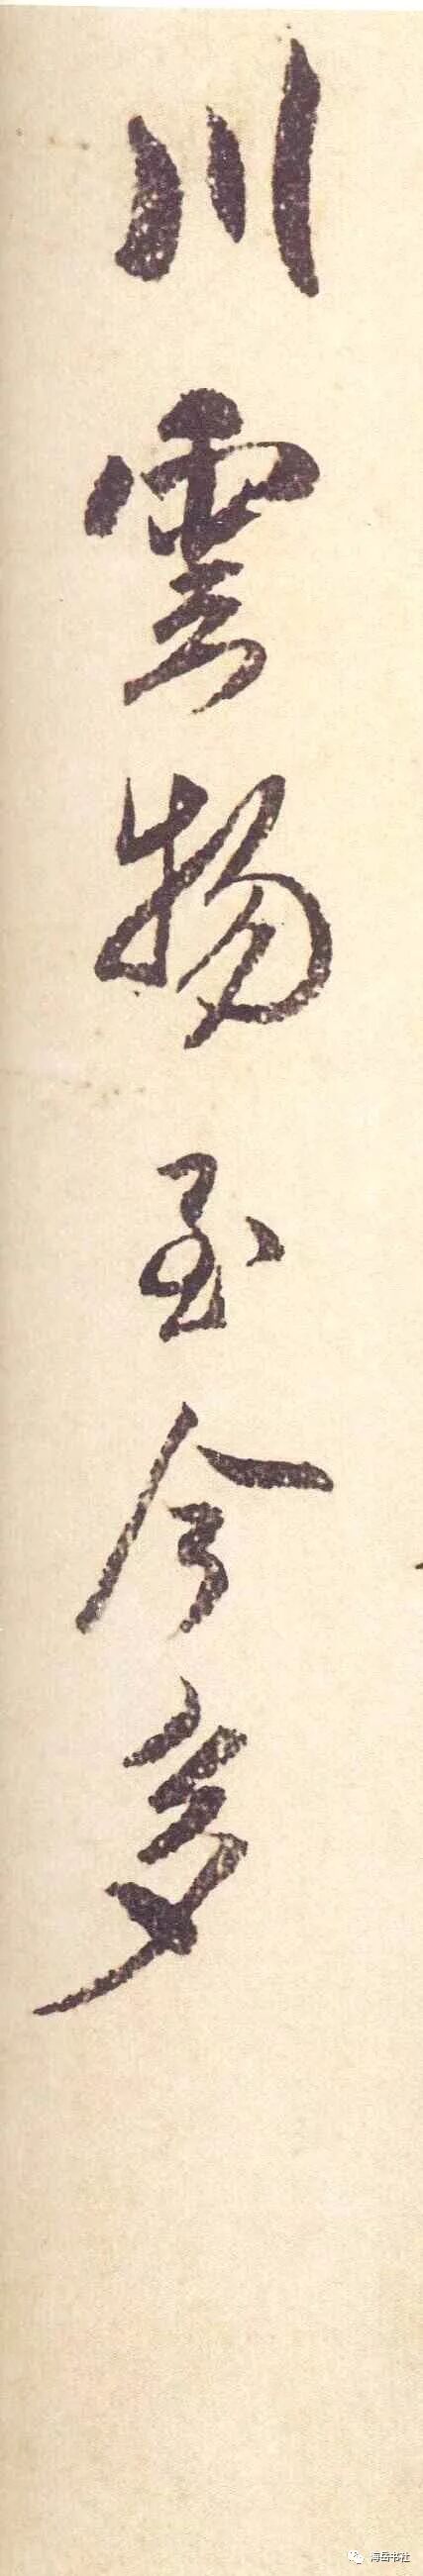 川雲物至今多
海岳书社